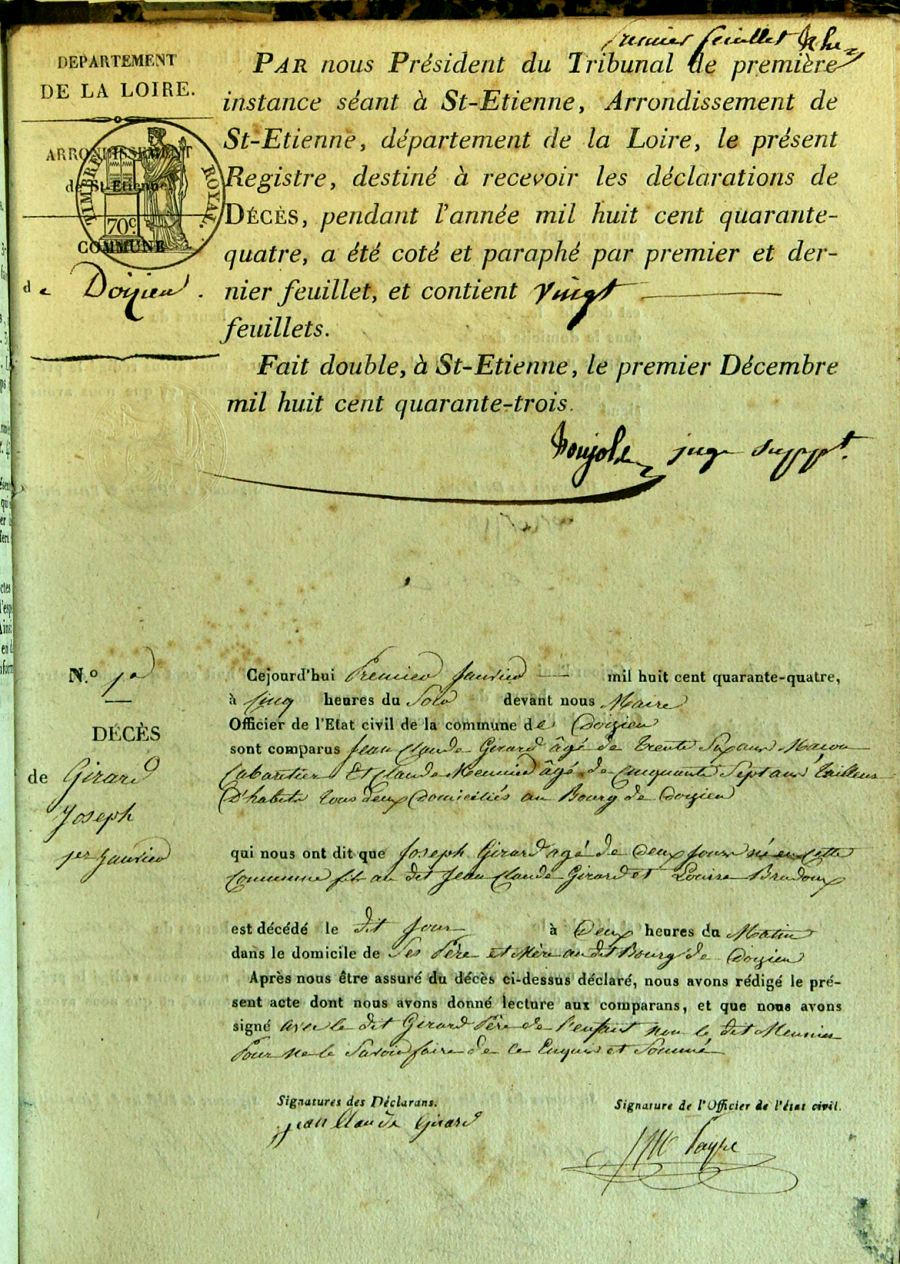 Premier feuillet
DEPARTEMENT
DE LA LOIRE.
ARRONDISSEMENT
de St-Etienne
TIMBRE ROYAL.
70c
COMMUNE
de Doizieu.
PAR nous Président du Tribunal de première
instance séant à St-Etienne, Arrondissement de
St-Etienne, département de la Loire, le présent
Registre, destiné à recevoir les déclarations de
DÉCÈS, pendant l'année mil huit cent quarante-
quatre, a été coté et paraphé par premier et der-
nier feuillet, et contient vingt
feuillets.
Fait double, à St-Etienne, le premier Décembre
mil huit cent quarante-trois.
juge suppt.
N.º 1er
DÉCÈS
de Girard
Joseph
1er Janvier
Cejourd'hui Premier Janvier mil huit cent quarante-quatre,
à Cinq heures du Soir devant nous Maire
Officier de l'Etat civil de la commune de Doizieu
sont comparus Jean Claude Girard âgé de trente Six ans Maçon
Cabaretier Et Claude Meunier âgé de Cinquante Sept ans tailleur
D'habits tous deux Domiciliés au Bourg de Doizieu
qui nous ont dit que Joseph Girard agé de Deux Jours né en Cette
Commune fils au dit Jean Claude Girard et Louise
est décédé le dit Jour à Deux heures du Matin
dans le domicile de Ses Père et Mère au dit Bourg de Doizieu
Après nous être assuré du décès ci-dessus déclaré, nous avons rédigé le pré-
sent acte dont nous avons donné lecture aux comparans, et que nous avons
signé avec le dit Girard Père de l'enfant non le dit Meunier
Pour ne le Savoir faire de ce Enquis et Sommé
Signatures des Déclarans.
Jean Claude Girard
Signature de l'Officier de l'état civil.